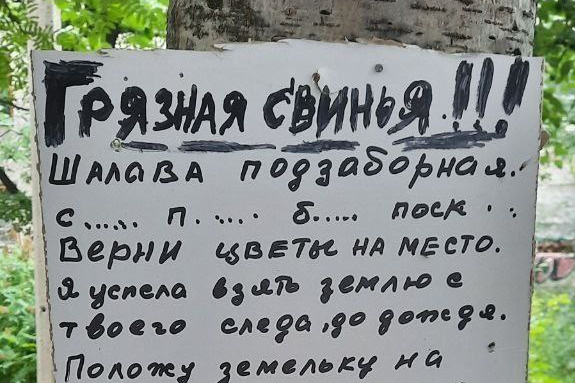 Грязная свинья!!!
Шалава подзаборная.
с..... п...... б..... поск..
Верни цветы на место.
Я успела взять землю с
твоего следа, до дождя.
Положу земельку на